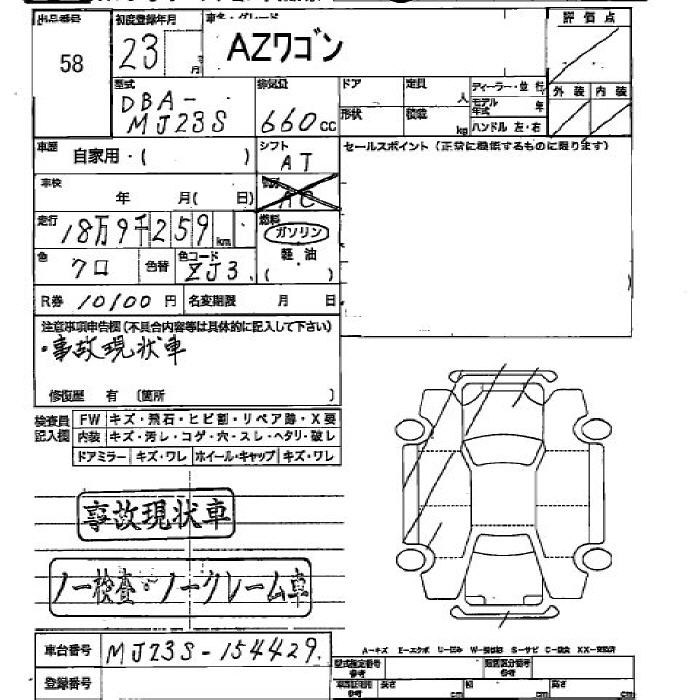 出品番号 初度登録年月 車名・グレード 評価点
58 23 年 月 AZワゴン
型式 排気量 ドア 定員 人 ディーラー・並 行 外装 内装
DBA- モデル年式 年
MJ23S 660cc 形状 積載 kg ハンドル 左・右
車歴 自家用・( ) シフト AT セールスポイント(正常に機能するものに限ります)
車検 年 月( 日) AC
走行 18万9千259km 燃料 ガソリン
軽油
色 クロ 色替 色コード ZJ3 ( )
R券 10100円 名変期限 月 日
注意事項申告欄(不具合内容等は具体的に記入して下さい)
・事故現状車
修復歴 有 〔箇所 〕
検査員記入欄 FW キズ・飛石・ヒビ割・リペア跡・X要
内装 キズ・汚レ・コゲ・穴・スレ・ヘタリ・破レ
ドアミラー キズ・ワレ ホイール・キャップ キズ・ワレ
事故現状車
ノー検査・ノークレーム車
車台番号 MJ23S-154429
A-キズ E-エクボ U-凹み W-補修跡 S-サビ C-腐食 XX-交換済
型式指定番号 類別区分番号
登録番号 長さ cm 幅 cm 高さ cm